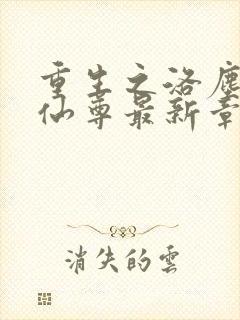 重生之洛塵
仙尊最新章
消失的雲